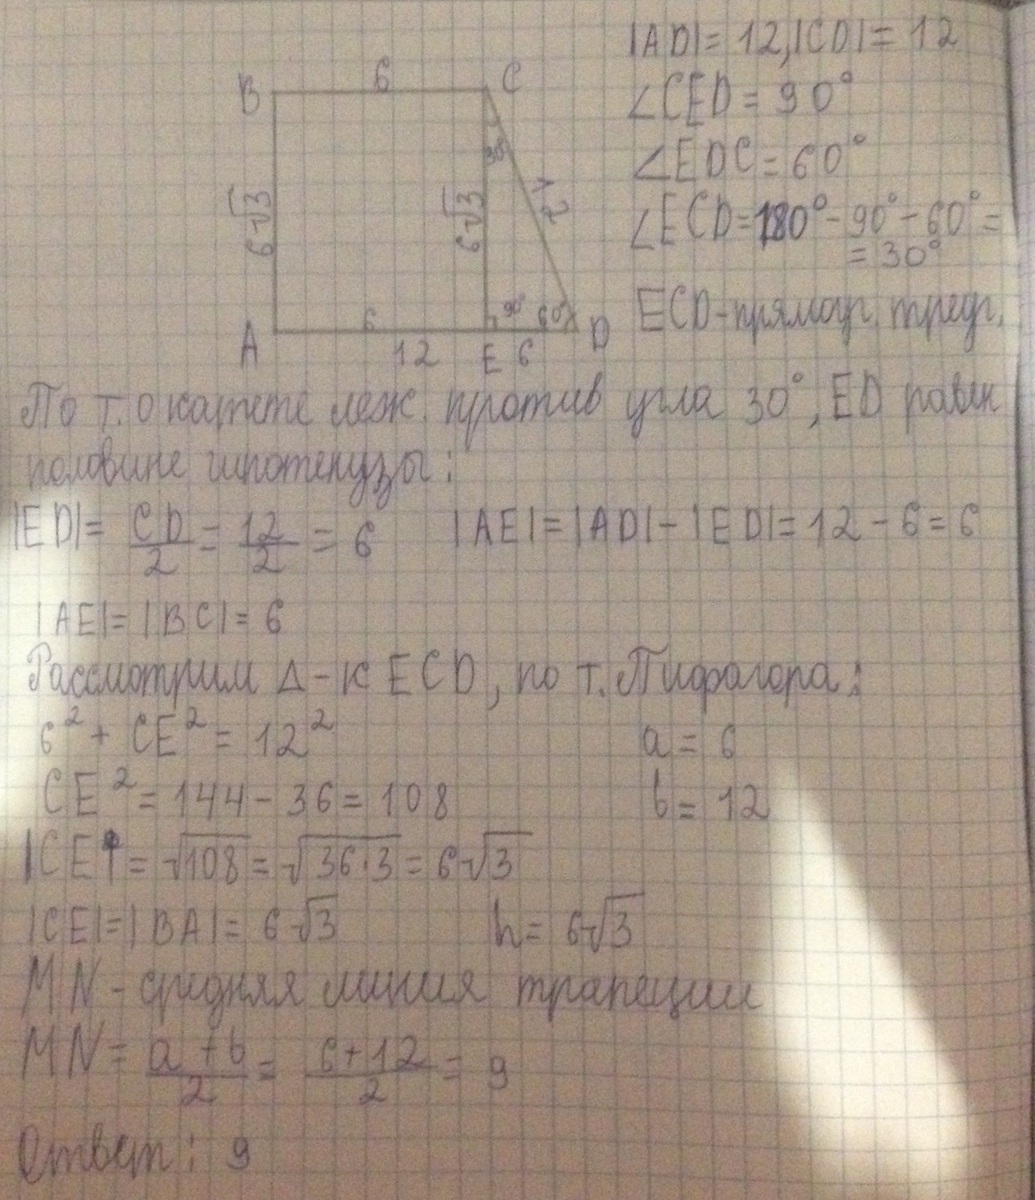 |AD| = 12, |CD| = 12
∠CED = 90°
∠EDC = 60°
∠ECD = 180° - 90° - 60° =
= 30°
ECD - прямоуг. треуг.
B 6 C
30°
6√3 6√3 12
6 90° 60°
A 12 E 6 D
По т. о катете леж. против угла 30°, ED равен
половине гипотенузы:
|ED| = CD/2 = 12/2 = 6 |AE| = |AD| - |ED| = 12 - 6 = 6
|AE| = |BC| = 6
Рассмотрим Δ-к ECD, по т. Пифагора:
6² + CE² = 12² a = 6
CE² = 144 - 36 = 108 b = 12
|CE| = √108 = √36·3 = 6√3
|CE| = |BA| = 6√3 h = 6√3
MN - средняя линия трапеции
MN = a + b/2 = 6 + 12/2 = 9
Ответ: 9